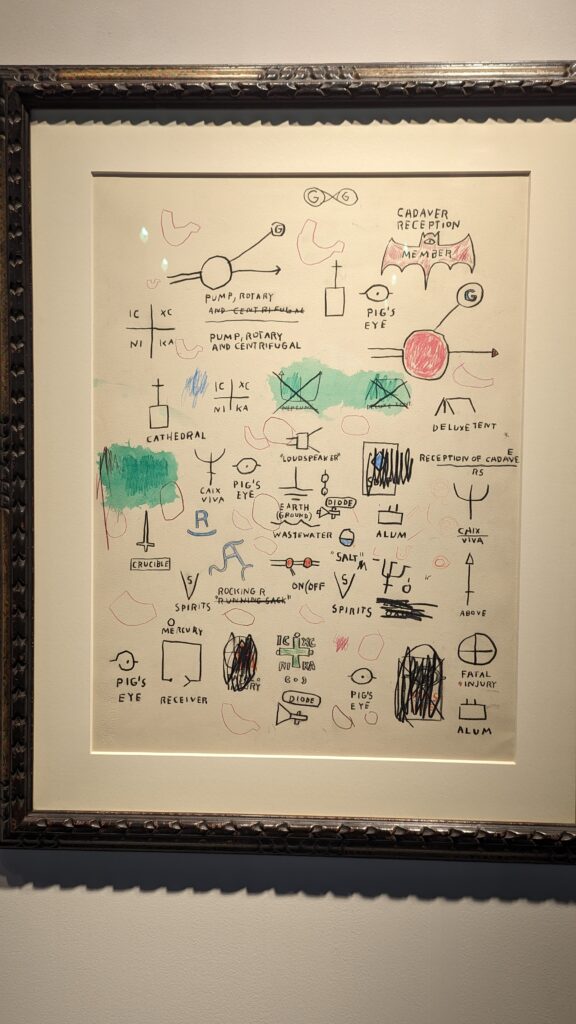 G G
CADAVER
RECEPTION
MEMBER
G
PUMP, ROTARY
AND CENTRIFUGAL
PIG'S
EYE
G
IC XC
NI KA
PUMP, ROTARY
AND CENTRIFUGAL
IC XC
NI KA
DELUXE TENT
CATHEDRAL
"LOUDSPEAKER"
RECEPTION OF CADAVE
E
RS
CAIX
VIVA
PIG'S
EYE
EARTH
(GROUND)
DIODE
R
WASTEWATER
ALUM
CAIX
VIVA
CRUCIBLE
"SALT"
S
SPIRITS
ROCKING R
"RUNNING SACK"
ON/OFF
S
SPIRITS
ABOVE
MERCURY
IC XC
NI KA
PIG'S
EYE
RECEIVER
PIG'S
EYE
FATAL
INJURY
DIODE
ALUM